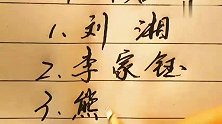 1、刘湘
2、李家钰
3、熊